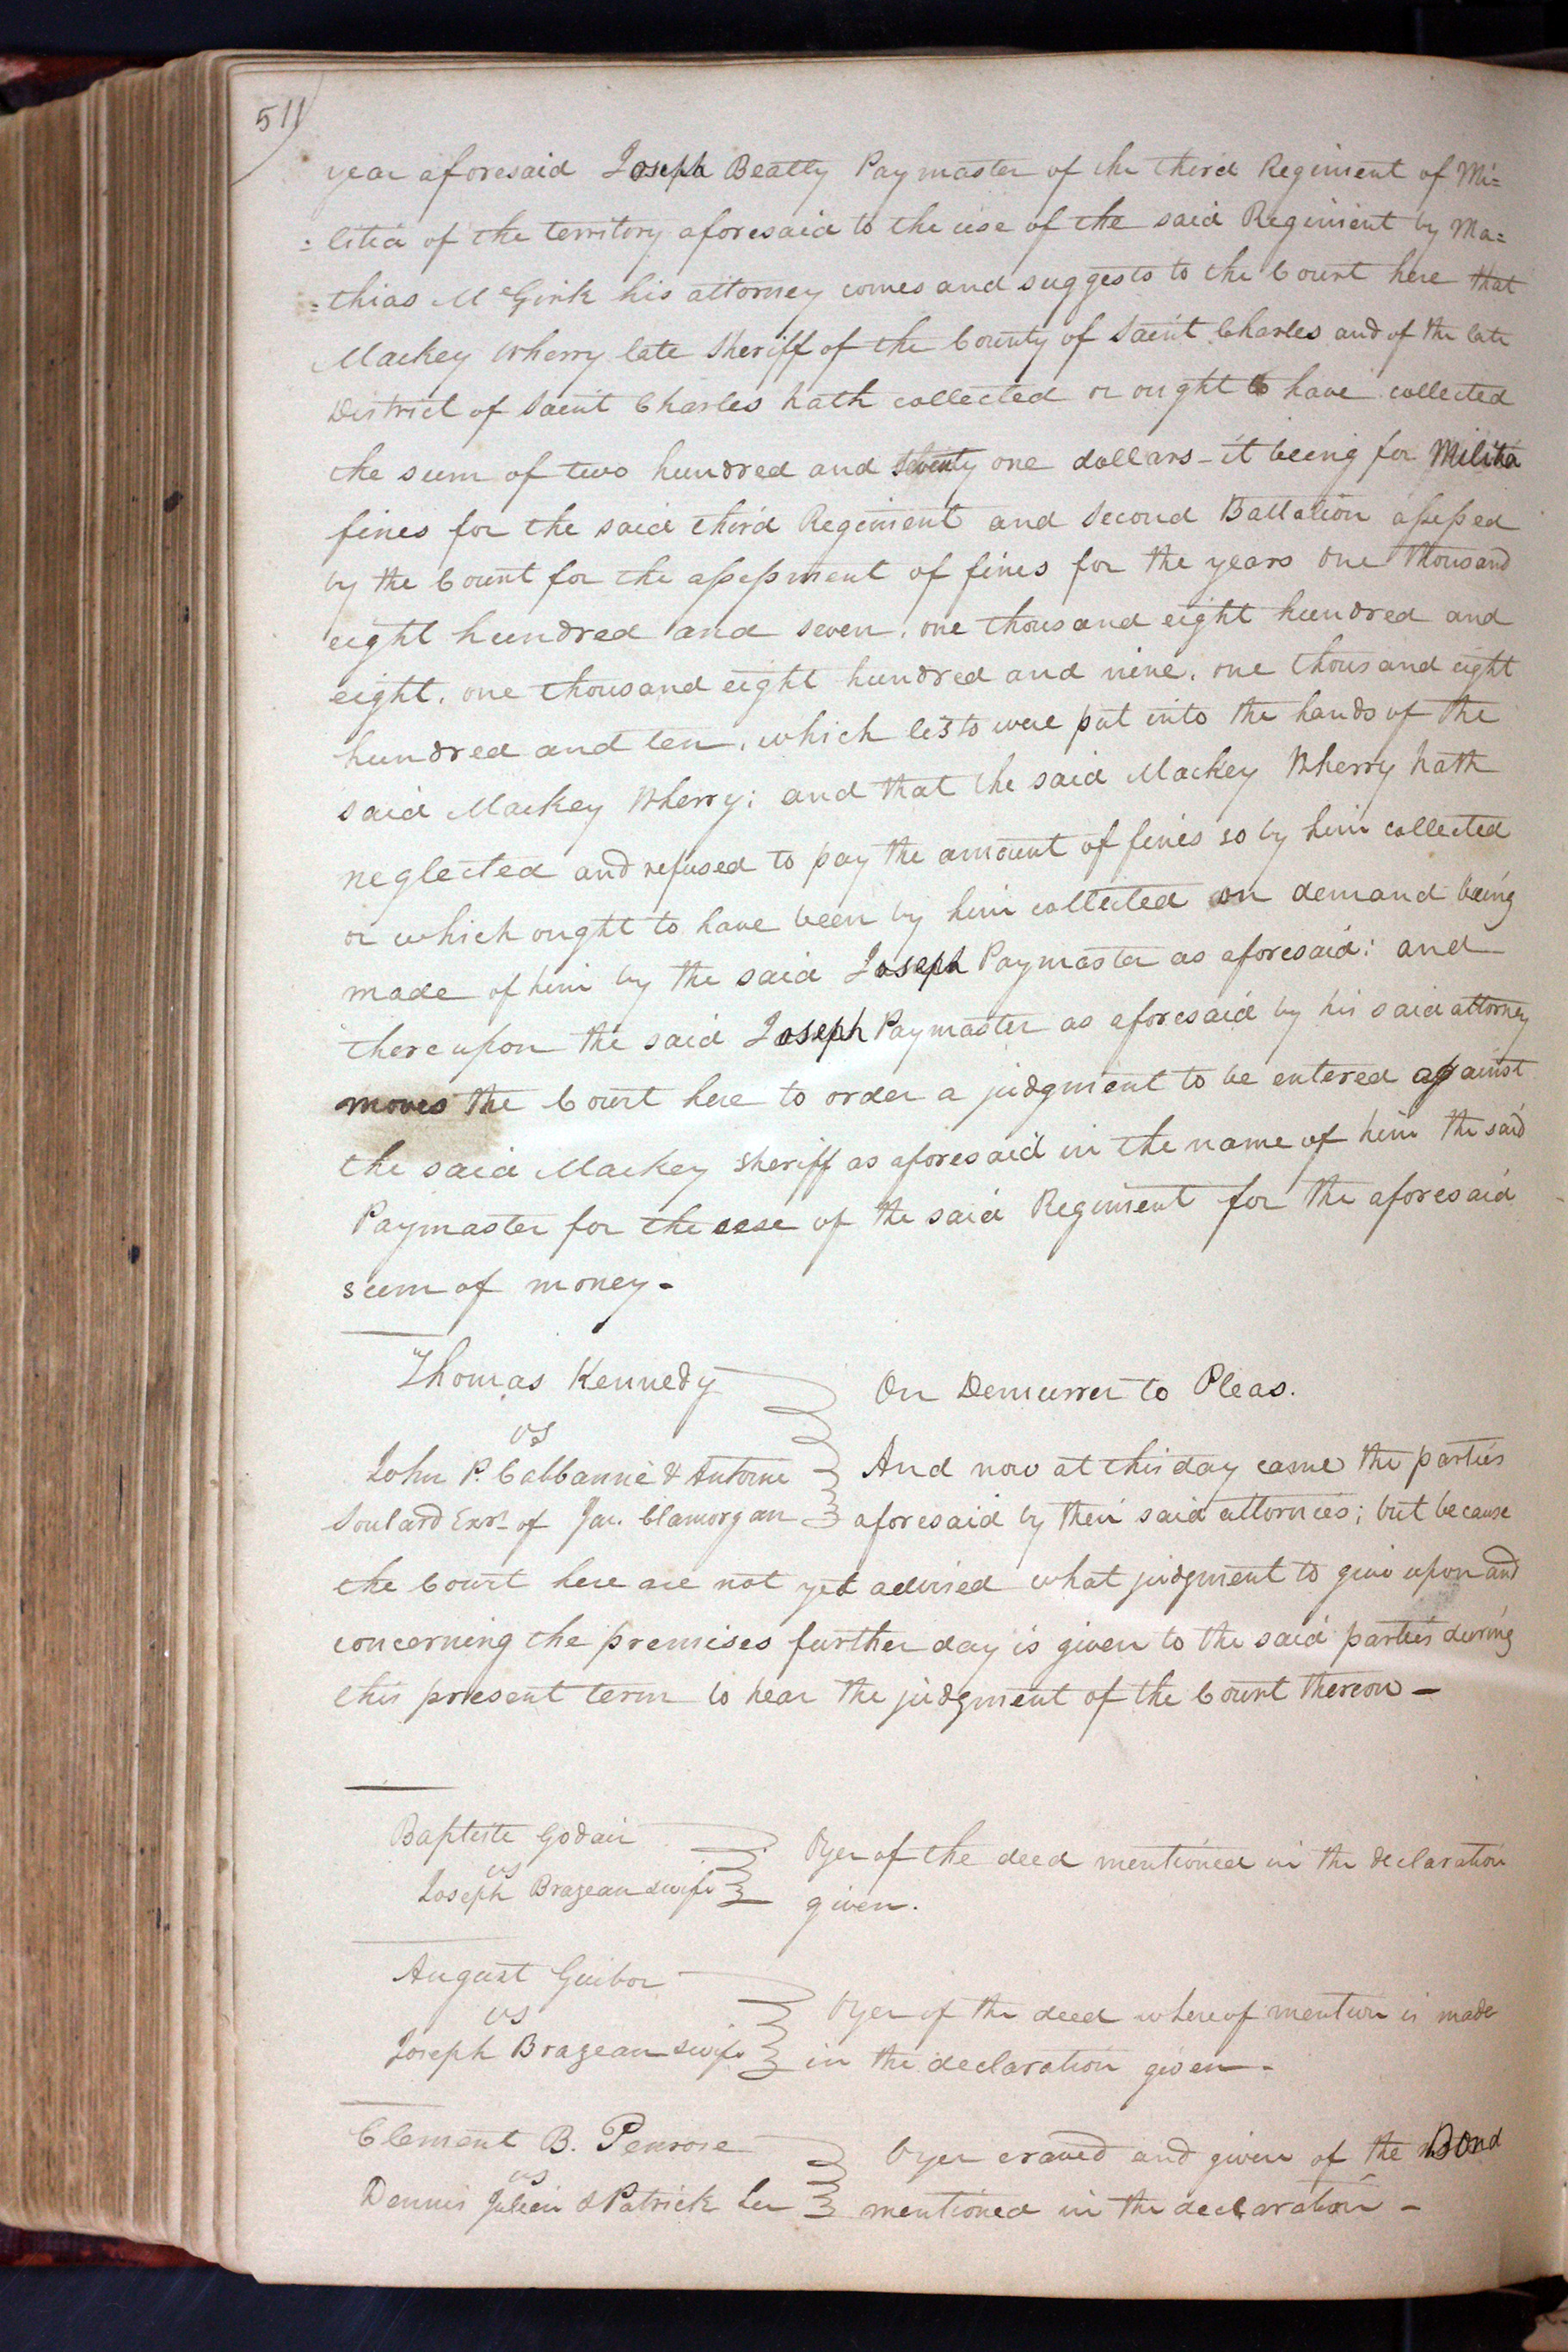 511
year aforesaid Joseph Beatty Paymaster of the third Regiment of Mi=
=litia of the territory aforesaid to the use of the said Regiment by Ma=
=thias McGirk his attorney comes and suggests to the Court here that
Mackey Wherry late Sheriff of the County of Saint Charles and of the late
District of Saint Charles hath collected or ought to have collected
the sum of two hundred and seventy one dollars - it being for Militia
fines for the said third Regiment and Second Battalion assessed
by the Court for the assessment of fines for the years One thousand
eight hundred and seven, one thousand eight hundred and
eight, one thousand eight hundred and nine, one thousand eight
hundred and ten, which lists were put into the hands of the
said Mackey Wherry; and that the said Mackey Wherry hath
neglected and refused to pay the amount of fines so by him collected
or which ought to have been by him collected on demand being
made of him by the said Joseph Paymaster as aforesaid: and
thereupon the said Joseph Paymaster as aforesaid by his said attorney
moves the Court here to order a judgment to be entered against
the said Mackey Sheriff as aforesaid in the name of him the said
Paymaster for the use of the said Regiment for the aforesaid
sum of money -
Thomas Kennedy
vs
John P. Cabbanné & Antoine
Soulard Exrs. of Jac. Clamorgan
On Demurrer to Pleas.
And now at this day came the parties
aforesaid by their said attornies; but because
the Court here are not yet advised what judgment to give upon and
concerning the premises further day is given to the said parties during
this present term to hear the judgment of the Court thereon -
Baptiste Godair
vs
Joseph Brazeau & wife
Oyer of the deed mentioned in the declaration
given.
August Guibor
vs
Joseph Brazeau & wife
Oyer of the deed whereof mention is made
in the declaration given -
Clement B. Penrose
vs
Dennis Julien & Patrick Lee
Oyer craved and given of the Bond
mentioned in the declaration -